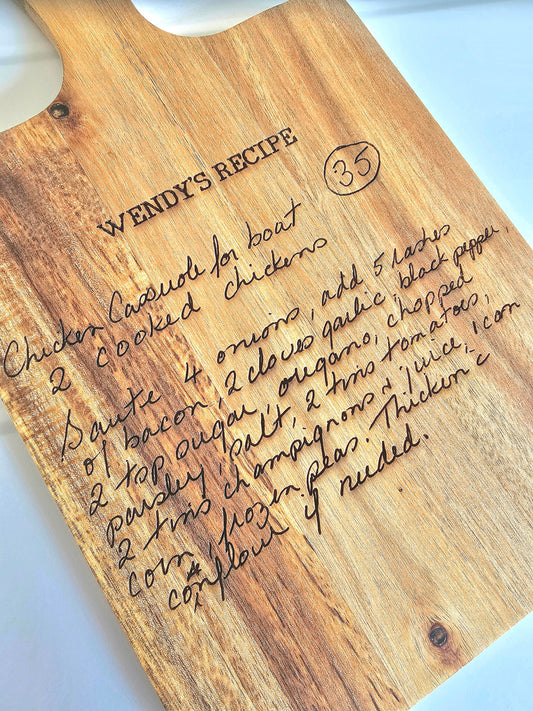 WENDY'S RECIPE
35
Chicken Casserole for boat
2 cooked chickens
Saute 4 onions, add 5 rashes
of bacon, 2 cloves garlic, black pepper,
2 tsp sugar, oregano, chopped
parsley, salt, 2 tins tomatoes,
2 tins champignons & juice, 1 can
corn, frozen peas. Thicken c̄
cornflour if needed.